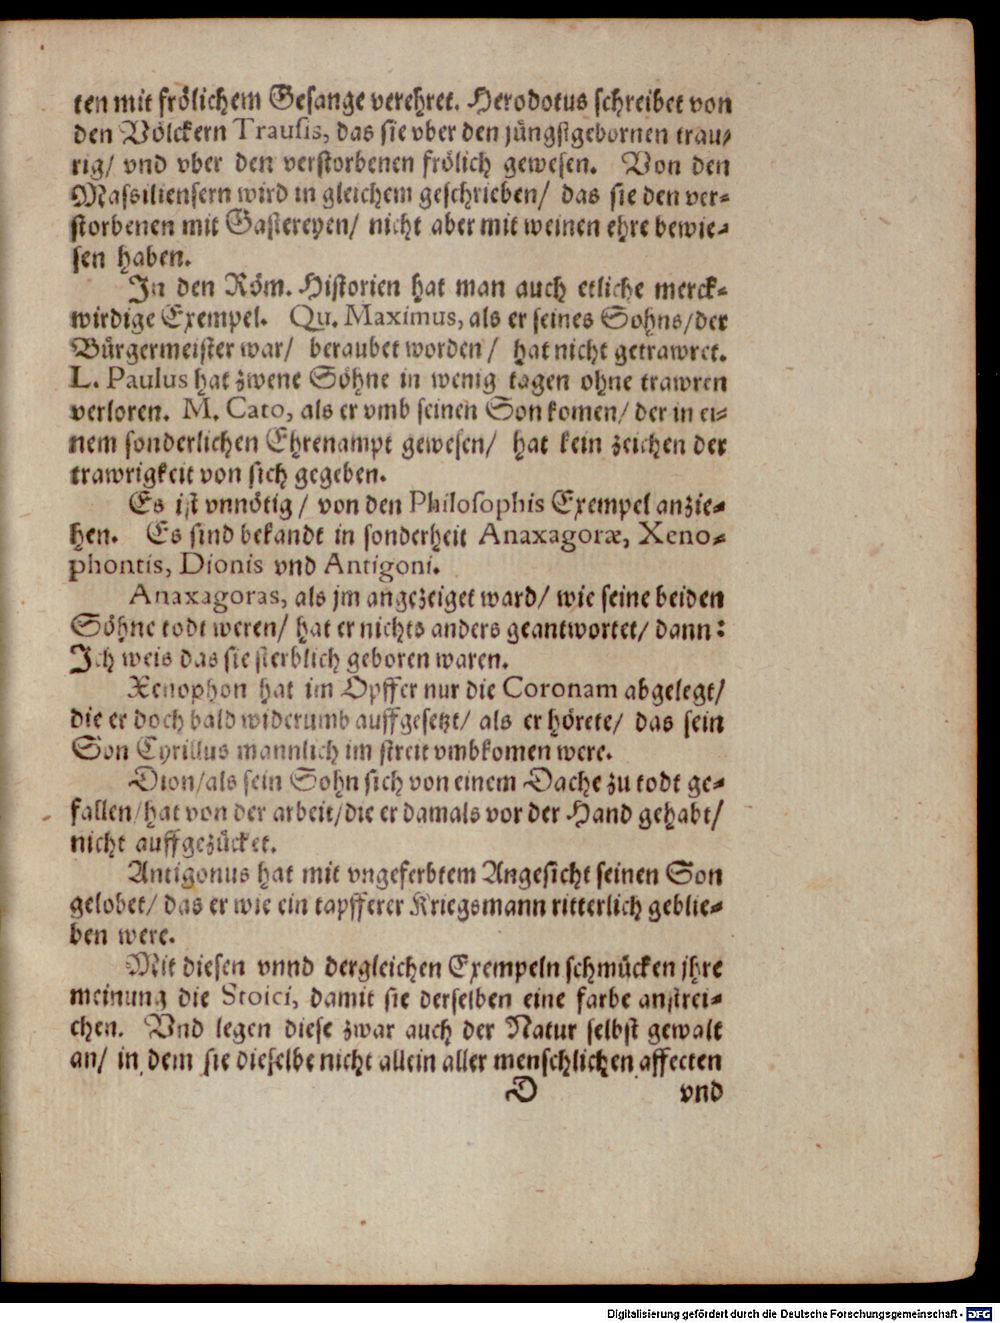 ten mit frölichem Gesange verehret. Herodotus schreibet von
den Völckern Trausis, das sie vber den jüngstgebornen trau-
rig/ vnd vber den verstorbenen frölich gewesen. Von den
Massiliensern wird in gleichem geschrieben/ das sie den ver-
storbenen mit Gastereyen/ nicht aber mit weinen ehre bewie-
sen haben.
In den Röm. Historien hat man auch etliche merck-
wirdige Exempel. Qu. Maximus, als er seines Sohns/der
Bürgermeister war/ beraubet worden/ hat nicht getrawret.
L. Paulus hat zwene Söhne in wenig tagen ohne trawren
verloren. M. Cato, als er vmb seinen Son komen/ der in ei-
nem sonderlichen Ehrenampt gewesen/ hat kein zeichen der
trawrigkeit von sich gegeben.
Es ist vnnötig/ von den Philosophis Exempel anzie-
hen. Es sind bekandt in sonderheit Anaxagoræ, Xeno-
phontis, Dionis vnd Antigoni.
Anaxagoras, als jm angezeiget ward/ wie seine beiden
Söhne todt weren/ hat er nichts anders geantwortet/ dann:
Ich weis das sie sterblich geboren waren.
Xenophon hat im Opffer nur die Coronam abgelegt/
die er doch bald widerumb auffgesetzt/ als er hörete/ das sein
Son Cyrillus mannlich im streit vmbkomen were.
Dion/als sein Sohn sich von einem Dache zu todt ge-
fallen/hat von der arbeit/die er damals vor der Hand gehabt/
nicht auffgezücket.
Antigonus hat mit vngeferbtem Angesicht seinen Son
gelobet/ das er wie ein tapfferer Kriegsmann ritterlich geblie-
ben were.
Mit diesen vnnd dergleichen Exempeln schmücken jhre
meinung die Stoici, damit sie derselben eine farbe anstrei-
chen. Vnd legen diese zwar auch der Natur selbst gewalt
an/ in dem sie dieselbe nicht allein aller menschlichen affecten
D vnd
Digitalisierung gefördert durch die Deutsche Forschungsgemeinschaft - DFG